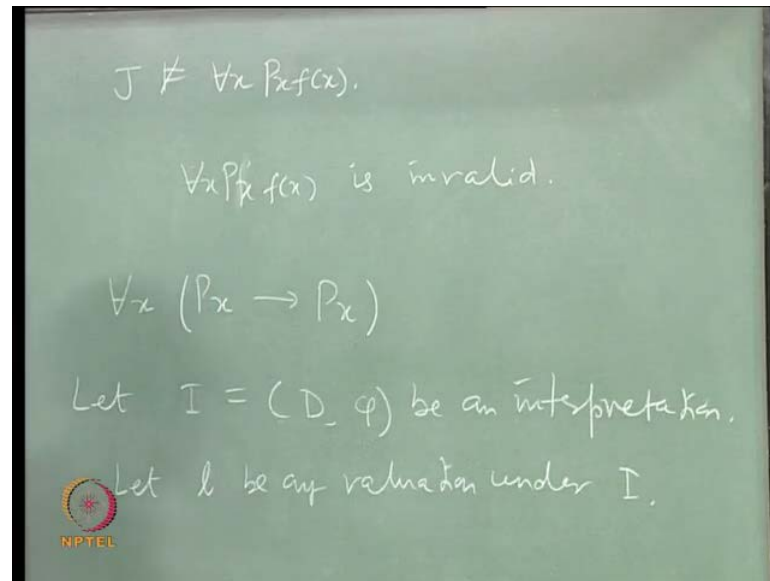 J ⊭ ∀x Pxf(x).
∀xPx f(x) is invalid.
∀x (Px → Px)
Let I = (D, φ) be an interpretation.
Let l be any valuation under I.
NPTEL